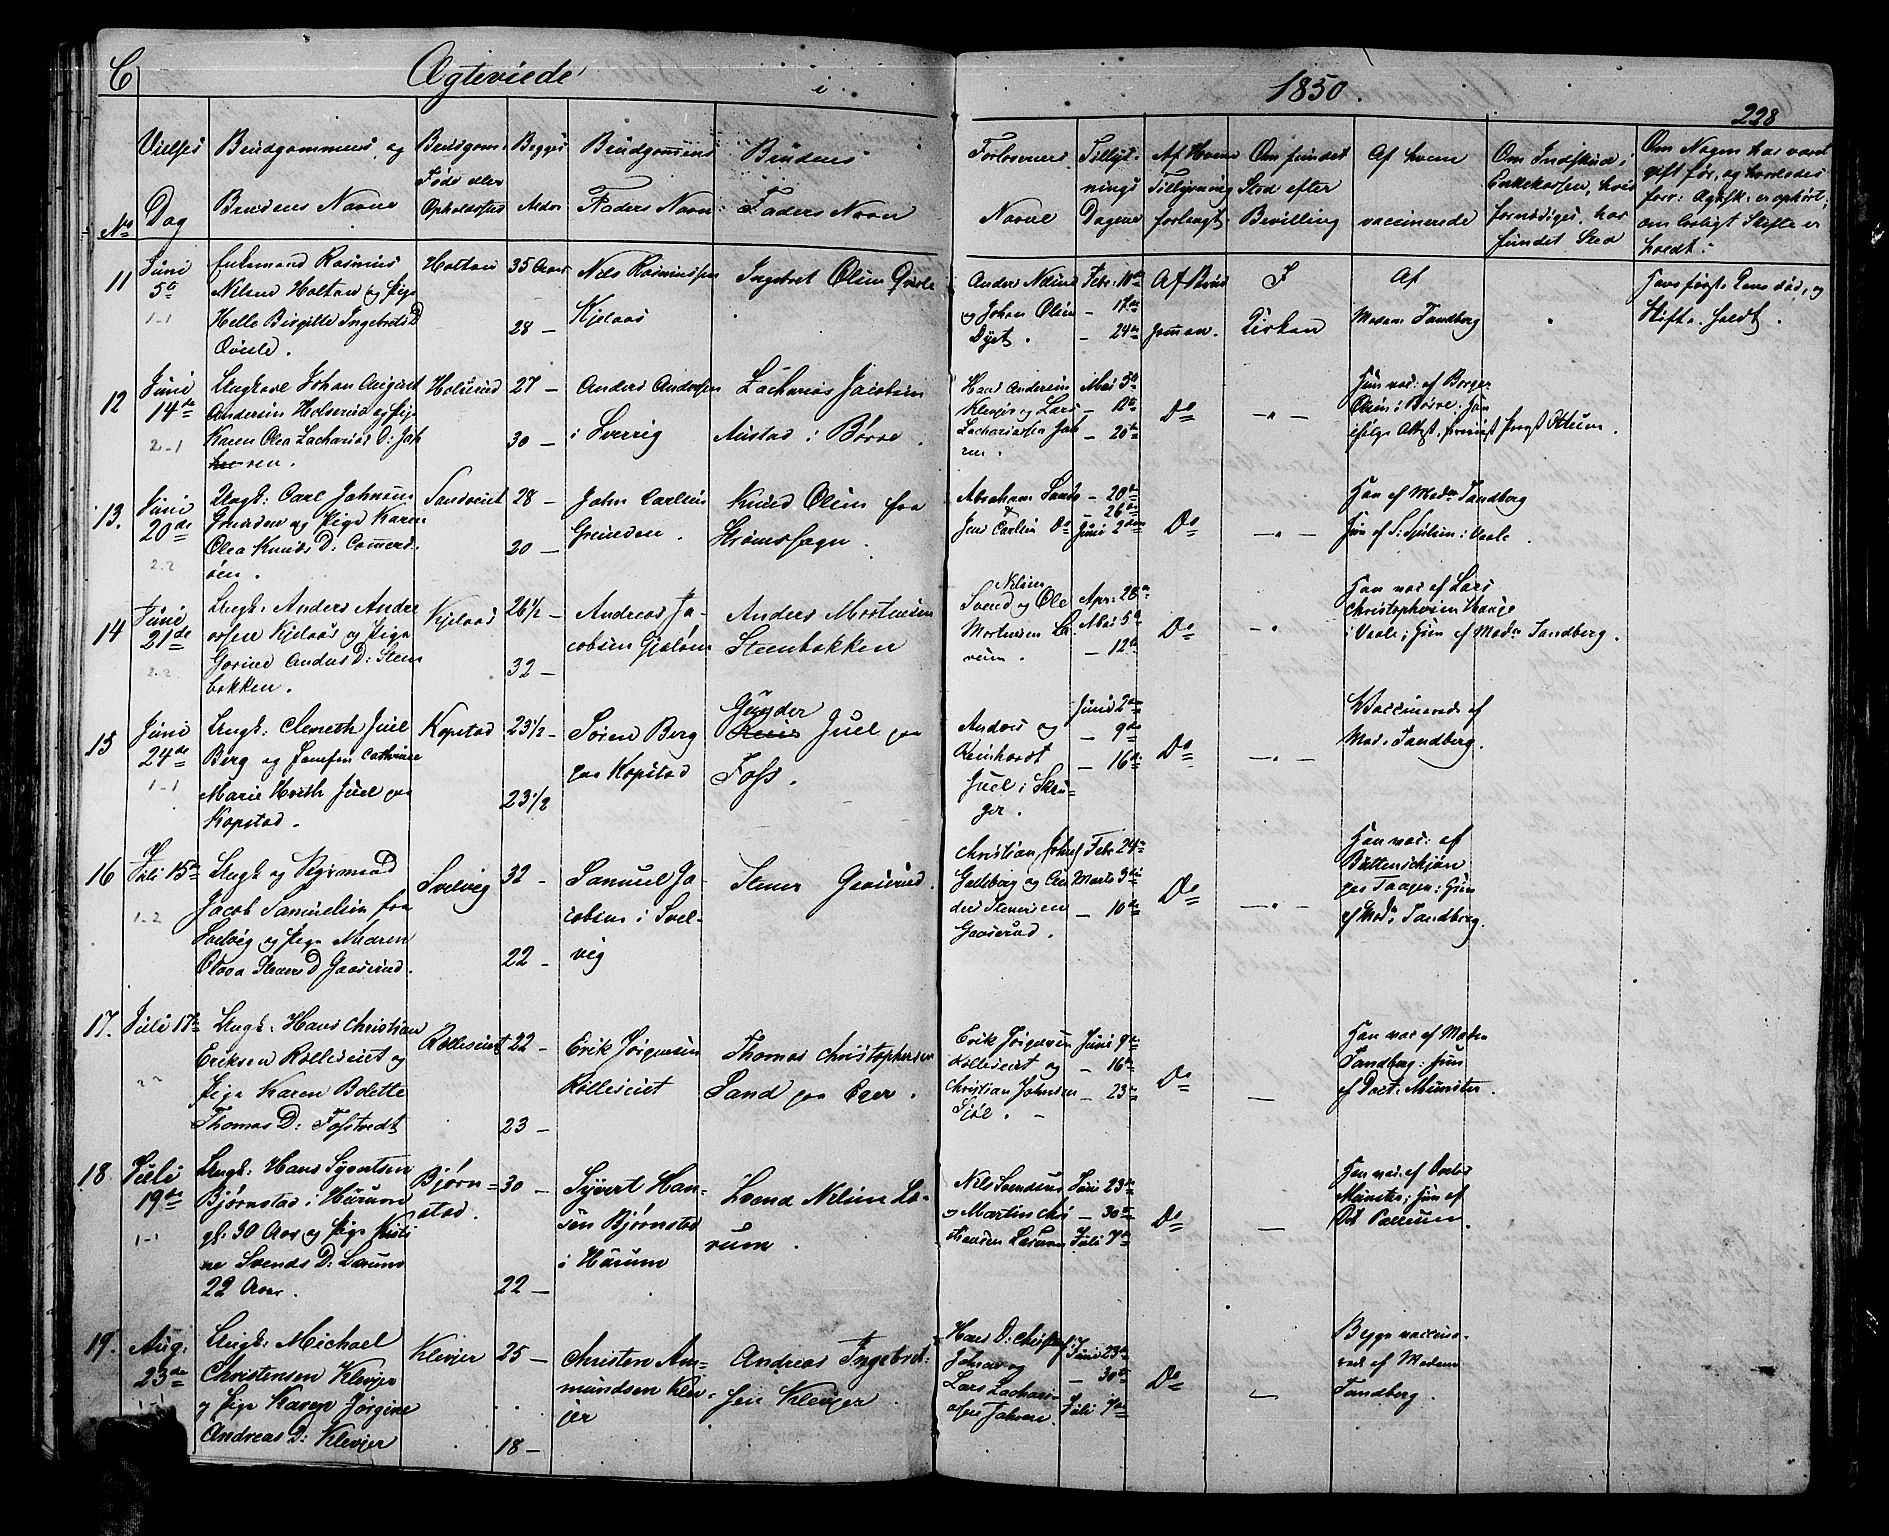 C Ægteviede i 1850.
228
No
Vielses Dag
Brudgommens og Brudens Navne
Brudgoms Føde eller Opholdssted
Begges Alder
Brudgommens Faders Navn
Brudens Faders Navn
Forlovernes Navne
Tillysnings Dagene
Af Hvem Tillysning forlangt
Om funden Sted efter Bevilling
Af hvem vaccinerede
Om Indskud i Enkekassen, hvis fornødiges, har fundet Sted
Om Nogen har været gift før, og hvorledes forr: Ægtesk: er ophørt, om lovligt Skifte er holdt.
11
Juni 5te
1-1
Enkemand Rasmus
Nilsen Holtan og Pige
Helle Birgitte Ingebrets D
Qvisle.
Holtan
35 Aar
28 —
Nils Rasmussen
Kjelaas
Ingebret Olsen Qvisle
og Johan Olsen
Febr: 10de
— 17de
— 24de
Af Brudgommen.
I
Kirken
Af
Madam Tandberg
Hans første Kone død, og
Skifte holdt.
12
Juni
14de
2-1
Ungkarl Johan August
Andersen Holserud og Pige
Karen Olea Zacharias D: Jah
ren.
Holserud
27 —
30 —
Anders Andersen
i Sverrig
Zacharias Jacobsen
Austad i Børre.
Hans Andersen
Klevjer og Lars
Zachariassen Jah
ren.
Mai 5te
— 12te
— 20de
Do
— " —
Han vac: af Borger
Olsen i Børre. Hun
ifølge Attest
13.
Juni
20de
2-2
Ungk: Carl Johnsen
Grinden og Pige Karen
Olea Knuds D:
øen.
Sandveiet
28 —
20 —
John Carlsen
Grinden.
Knud Olsen fra
Strømssogn.
Abraham Sands
Jens Carlsen Do
— 20de
— 26de
Juni 2den
Do
— " —
Han af Madm Tandberg
Hun af S. i Vaale.
14
Juni
21de
2-2
Ungk: Anders Andre
assen Kjelaas og Pige
Gorine Anders D: Steen
bakken.
Kjelaas
26 1/2 —
32 —
Andreas Ja-
cobsen
Anders Mortensen
Steenbakken
Nilsen
Svend og Ole
Mortensen
Apr: 28de
Mai 5te
— 12te
Do
— " —
Han vac af Lars
Christophersen Hauge
i Vaale; Hun af Madm Tandberg.
15
Juni
24de
1-1
Ungk: Clemeth Juel
Berg og Josefin Cathrine
Marie Hvidth Juel paa
Kopstad.
Kopstad
23 1/2 —
23 1/2
Søren Berg
paa Kopstad
Gunder
Juel paa
Foss.
Anders og
Reinhardt
Juel i Skou-
ger.
Juni 2den
— 9de
— 16de
Do
— " —
Vaccinerede af
Mad: Tandberg.
16
Juli 15de
1-2
Ungk og Styrmand
Jacob Samuelsen fra
Svelvig og Pige Maren
Olava Steners D Gaaserud.
Svelvig
32 —
22 —
Samuel Ja-
cobsen i Svel-
vig
Stener Gaaserud.
Christian
og An
ders Stenersen
Gaaserud.
Febr 24de
Marts 3die
— 10de
Do
— " —
Han vac: af
Buttenschjøn
paa Taagen: Hun
af Madm Tandberg.
17.
Juli 17de
2-2
Ungk: Hans Christian
Eriksen Rølleseiet og
Pige Karen Bolette
Thomas D: Fosstvedt
Rølleseiet
22 —
23 —
Erik Jørgensen
Rølleseiet
Thomas Christophersen
Sand paa Eger.
Erik Jørgensen
Rølleseiet og
Christian Johnsen
Juni 9de
— 16de
— 23de
Do
—
Han vac af Madm
Tandberg: Hun
af Doct: Münster.
18
Juli
19de
1-1
Ungk: Hans Syvertsen
Bjørnstad i Hurum
gl: 30 Aar og Pige Kisti
ne Svends D: Lørum
22 Aar.
Bjørn=
stad.
30 —
22 —
Syvert Han-
sen Bjørnstad
i Hurum
Svend Nilsen Lø-
rum.
Nils Svendsen
og Martin
Hansen Lørum
Juni 23de
— 30te
Juli 7de
Do
—
Han vac: af Doctor
Münster; Hun af
Dct Paulsen.
19.
Aug:
23de
1-1
Ungk: Michael
Christensen Klevjer
og Pige Karen Jørgine
Andreas D: Klevjer
Klevjer
25 —
18 —
Christen Am-
mundsen Klev-
jer
Andreas Ingebret-
sen Klevjer.
Hans
Jahren og
Lars Zachari-
assen Jahren.
Juni 23de
— 30te
Juli 7de
Do
—
Begge vaccine-
rede af Madam
Tandberg.